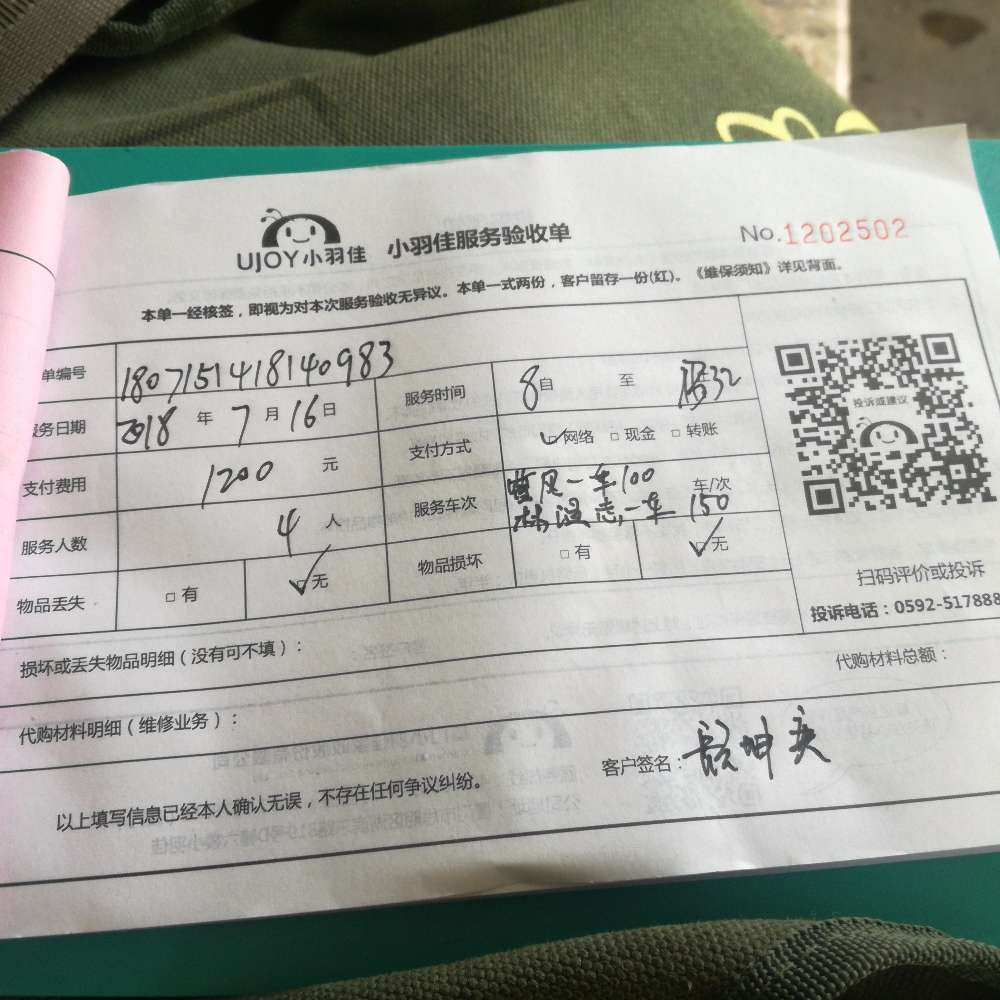 UJOY小羽佳 小羽佳服务验收单 No.1202502
本单一经核签，即视为对本次服务验收无异议。本单一式两份，客户留存一份(红)。《维保须知》详见背面。
单编号 1807151418140983
服务日期 2018 年 7 月 16 日 服务时间 8 自 至
支付费用 1200 元 支付方式 网络 □ 现金 □ 转账
服务人数 4 人 服务车次 风一车100 车/次
志一车 150
物品丢失 □ 有 无 物品损坏 □ 有 无
投诉或建议
扫码评价或投诉
投诉电话：0592-517888
损坏或丢失物品明细（没有可不填）：
代购材料总额：
代购材料明细（维修业务）：
客户签名：
以上填写信息已经本人确认无误，不存在任何争议纠纷。